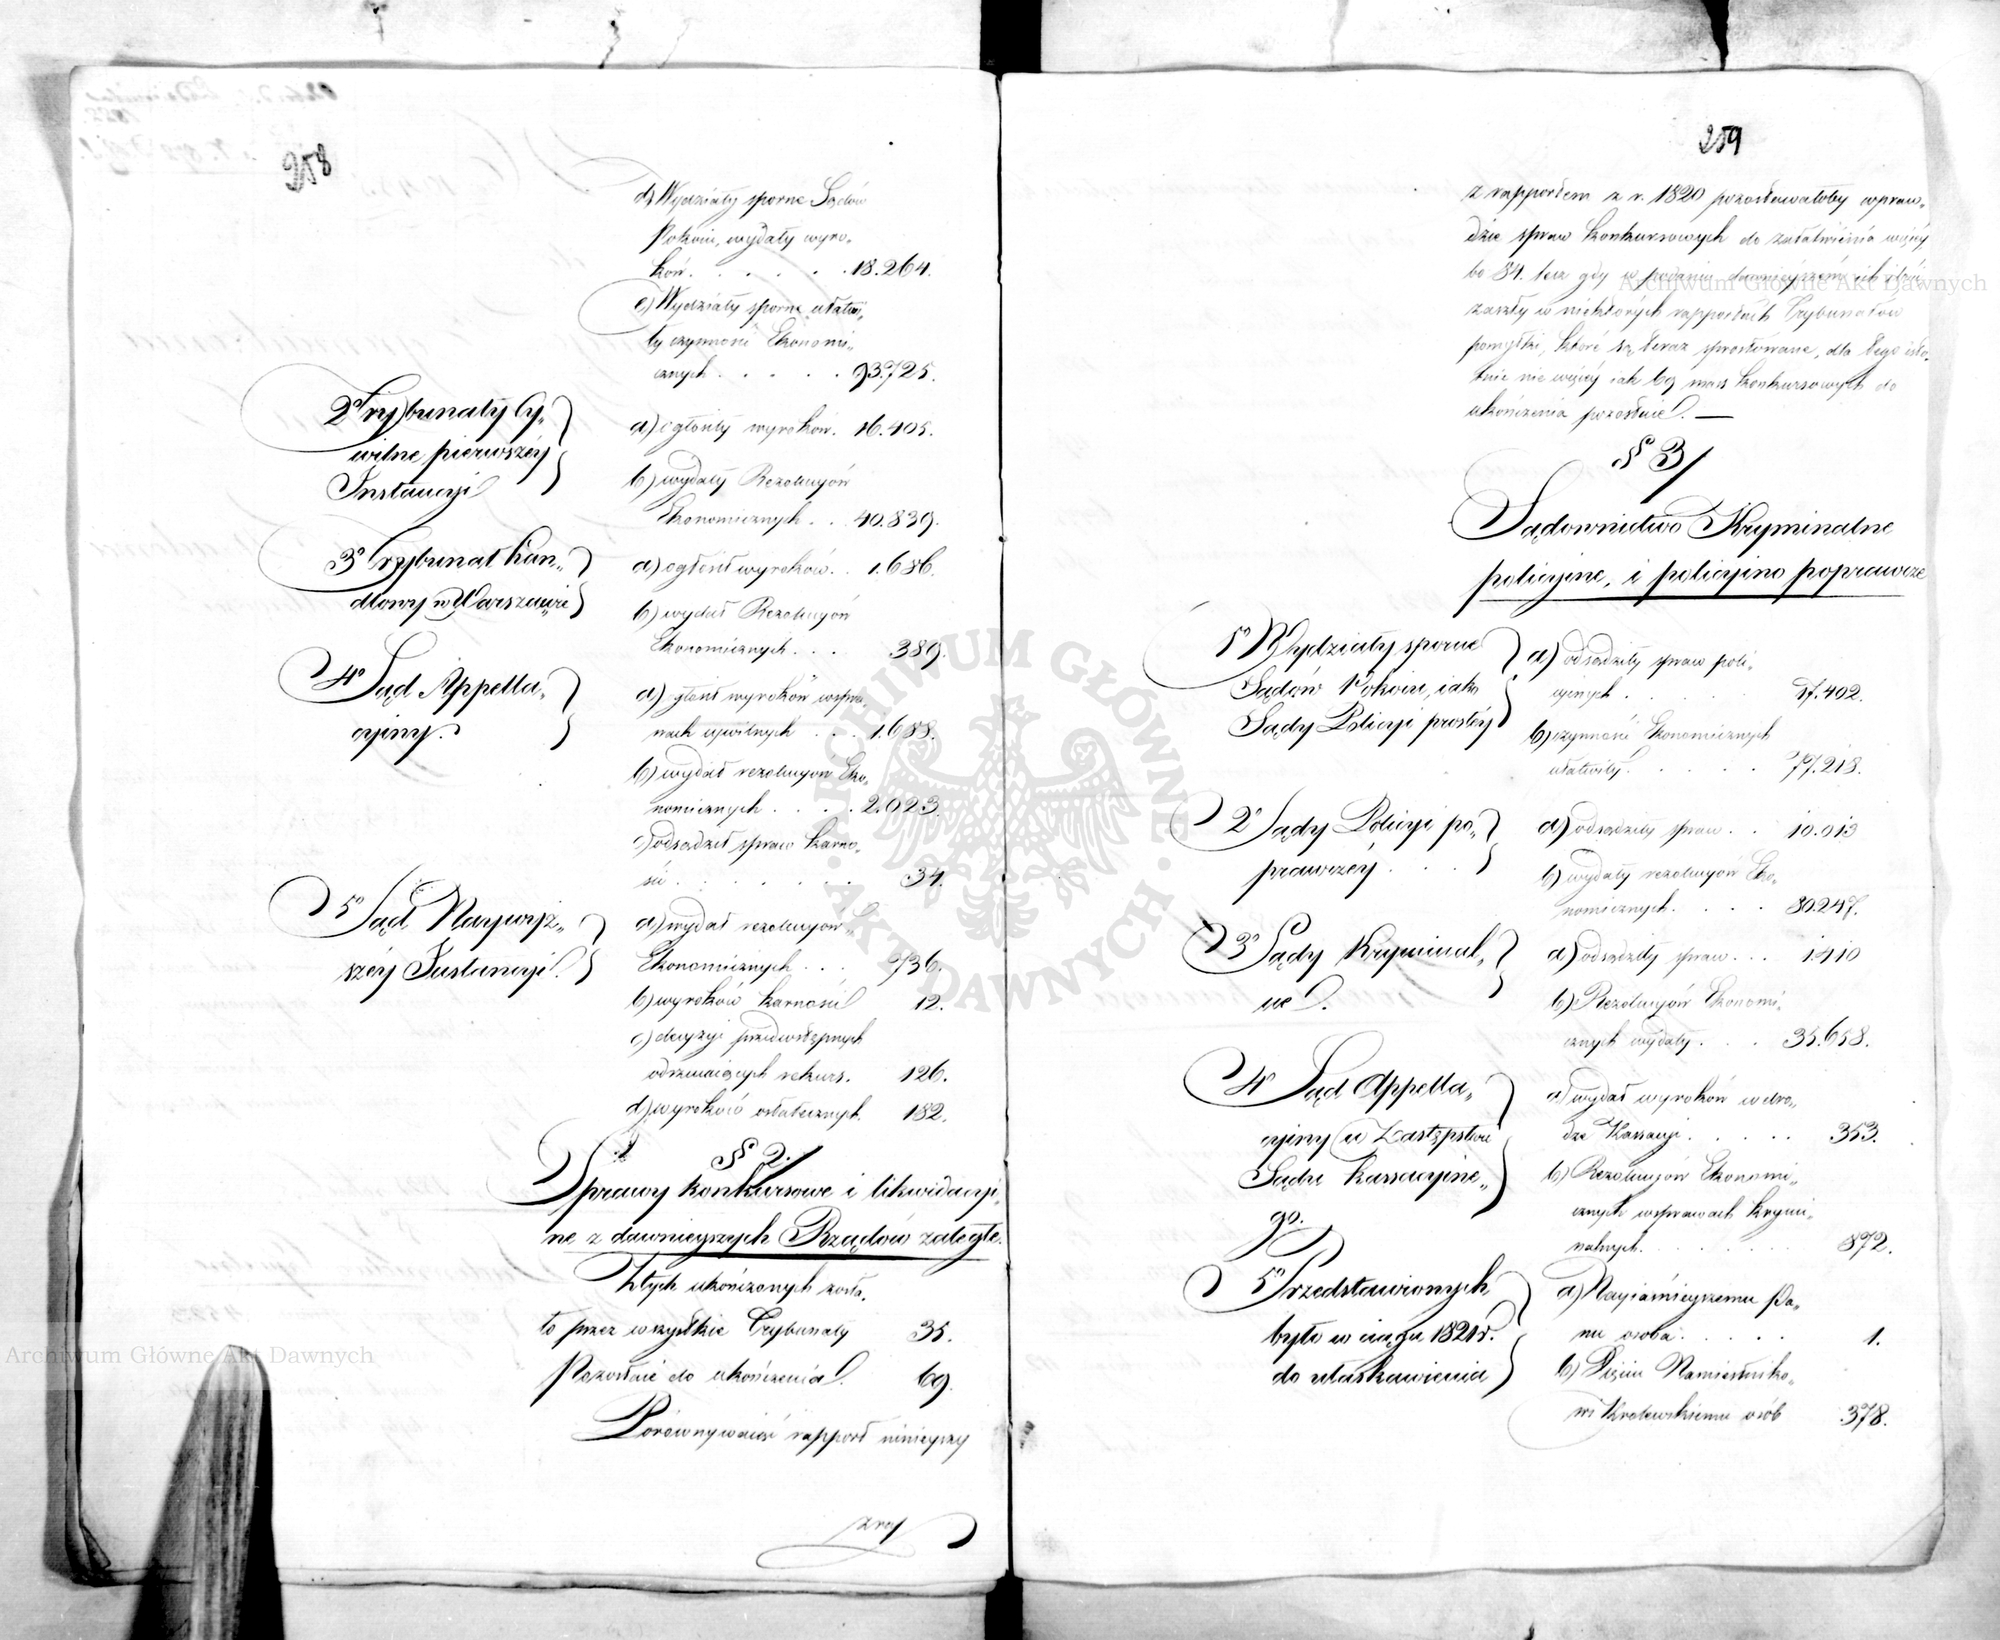 258
d) Wydziały sporne Sądów
Pokoiu, wydały wyro-
ków. . . . . . 18.264.
e) Wydziały sporne ułatwi-
ły czynności Ekonomi-
cznych . . . . . 93.725.
2° Trybunały Cy-
wilne pierwszéy
Instancyi
a) ogłosiły wyroków. 16.405.
b) wydały Rezolucyów
Ekonomicznych . . 40.839.
3° Trybunał Han-
dlowy w Warszawie
a) ogłosił wyroków. . 1.686.
b) wydał Rezolucyów
Ekonomicznych . . . 389.
4° Sąd Appella-
cyiny.
a) ogłosił wyroków w spra-
wach cywilnych . . . 1.688.
b) wydał rezolucyów Eko-
nomicznych . . . . 2.023.
c) odsądził spraw karno-
ści . . . . . . 34.
5° Sąd Naywyż-
széy Instancyi.
a) wydał rezolucyów
Ekonomicznych . . . 736.
b) wyroków karności 12.
c) decyzyi przedwstępnych
odrzucaiących rekurs. 126.
d) wyroków ostatecznych. 182.
§ 2.
Sprawy konkursowe i likwidacyi-
ne z dawnieyszych Rządów zaległe.
Z tych ukończonych zosta-
ło przez wszystkie Trybunały 35.
Pozostaie do ukończenia. 69.
Porównywaiąc rapport ninieyszy
z rap
259
z rapportem z r. 1820 pozostawałoby wpraw-
dzie spraw konkursowych do załatwienia więcéy
bo 84. lecz gdy w podaniu dawnieyszém ich ilości
zaszły w niektórych rapportach Trybunałów
pomyłki, które są teraz sprostowane, dla tego isto-
tnie nie więcéy iak 69 mass konkursowych do
ukończenia pozostaie. —
§ 3
Sądownictwo Kryminalne
policyine, i policyino poprawcze
1° Wydziały sporne
Sądów Pokoiu, iako
Sądy Policyi prostéy
a) odsądziły spraw poli-
cyinych . . . . 17.402.
b) czynności Ekonomicznych
ułatwiły. . . . . 77.218.
2° Sądy Policyi po-
prawczéy . . .
a) odsądziły spraw . . 10.013
b) wydały rezolucyów Eko-
nomicznych. . . . 80.247.
3° Sądy Kryminal-
ne.
a) odsądziły spraw . . . 1.410
b) Rezolucyów Ekonomi-
cznych wydały . . . 35.658.
4° Sąd Appella-
cyiny w Zastępstwie
Sądu Kassacyine-
go.
a) wydał wyroków w dro-
dze Kassacyi . . . . . 353.
b) Rezolucyów Ekonomi-
cznych w sprawach krymi-
nalnych. . . . . . . 872.
5° Przedstawionych
było w ciągu 1821 r.
do ułaskawienia
a) Nayiaśnieyszemu Pa-
nu osoba . . . . . 1.
b) Xięciu Namiestniko-
wi Królewskiemu osób 378.
Archiwum Główne Akt Dawnych
Archiwum Główne Akt Dawnych
ARCHIWUM GŁÓWNE · AKT DAWNYCH ·